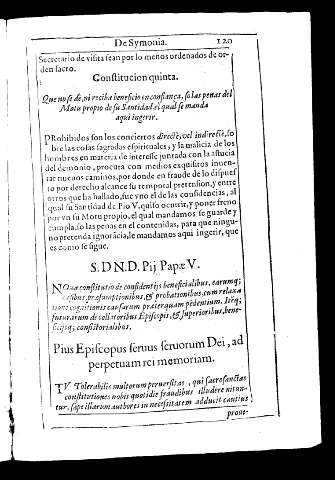 De Symonia. 120
Secretario de visita sean por lo menos ordenados de or-
den sacro.
Constitucion quinta.
Que no se dè, ni reciba beneficio en confiança, so las penas del
Motu propio de su Santidad, el qual se manda
aqui ingerir.
PRohibidos son los conciertos directè, vel indirectè, so
bre las cosas sagradas espirituales, y la malicia de los
hombres en materia de interesse juntada con la astucia
del demonio, procura con medios exquisitos inuen-
tar nueuos caminos, por donde en fraude de lo dispuesto
por derecho alcance su temporal pretension, y entre
otros que ha hallado, fue vno el de las confidencias, al
qual su Santidad de Pio V. quiso ocurrir, y poner freno
por vn su Motu propio, el qual mandamos se guarde y
cumpla, so las penas en el contenidas, para que ningu-
no pretenda ignorãcia, le mandamos aqui ingerir, que
es como se sigue.
S. D. N. D. Pij Papæ V.
NOua constitutio de confidentijs beneficialibus, earumq;
casibus, præsumptionibus, & probationibus, cum relaxa
tione cognitionis causarum præterquam pedentium. Itẽq;
futurarum de collatoribus Episcopis, & superioribus, bene-
ficijsq; consistorialibus.
Pius Episcopus seruus seruorum Dei, ad
perpetuam rei memoriam.
Tolerabilis multorum peruersitas, qui sacrosanctas
constitutiones nobis quotidie fraudibus illudere nitun-
tur, sæpe illarum authores in necessitatem adducit cautius
proui-